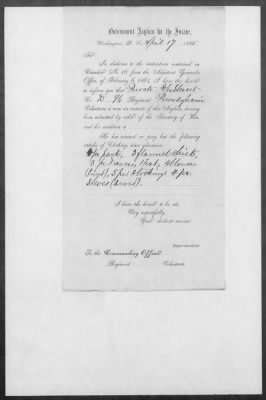 Government Asylum for the Insane.
Washington, D. C., April 17 186
Sir:
In obedience to the instructions contained in
Circular No. 18, from the Adjutant General's
Office, of February 6, 1862, I have the honor to
inform you that Private
Co. D 96 Regiment Pennsylvania
Volunteers is now an inmate of this Asylum, having
been admitted by order of the Secretary of War,
and his condition is
He has received no pay, but the following
articles of Clothing since admission:
3 flannel shirts,
3 pr drawers, 1 hat, 4 blouses
5 pr Stockings 4 pr
Shoes (sewed).
I have the honor to be, sir,
Very respectfully,
Your obedient servant,
Superintendent.
To the Commanding Officer
Regiment Volunteers.